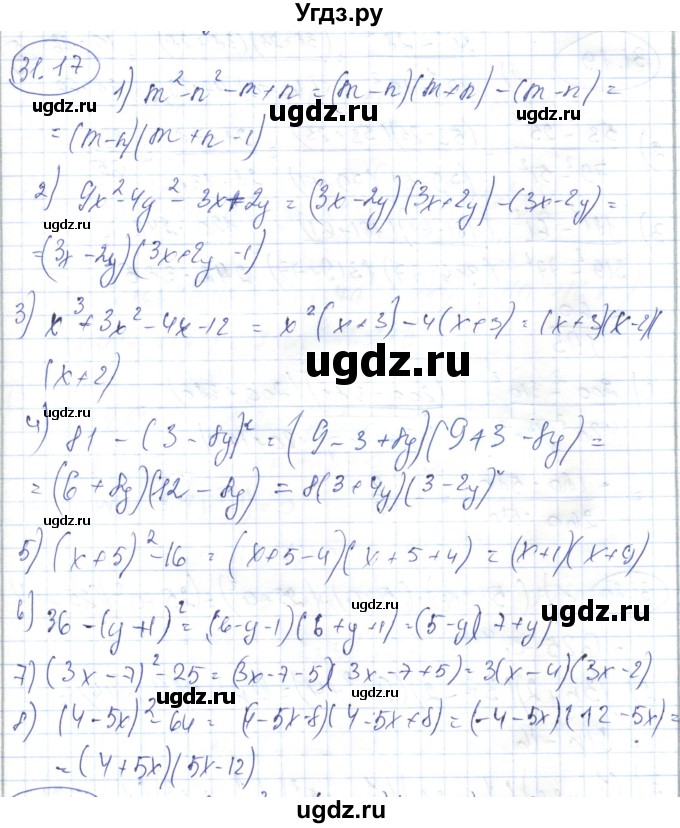 Угдз.ру
31.17
1) m² - n² - m + n = (m - n)(m + n) - (m - n) =
= (m - n)(m + n - 1)
2) 9x² - 4y² - 3x + 2y = (3x - 2y)(3x + 2y) - (3x - 2y) =
= (3x - 2y)(3x + 2y - 1)
3) x³ + 3x² - 4x - 12 = x²(x + 3) - 4(x + 3) = (x + 3)(x - 2)(
(x + 2)
4) 81 - (3 - 8y)² = (9 - 3 + 8y)(9 + 3 - 8y) =
= (6 + 8y)(12 - 8y) = 8(3 + 4y)(3 - 2y)
5) (x + 5)² - 16 = (x + 5 - 4)(x + 5 + 4) = (x + 1)(x + 9)
6) 36 - (y + 1)² = (6 - y - 1)(6 + y + 1) = (5 - y)(7 + y)
7) (3x - 7)² - 25 = (3x - 7 - 5)(3x - 7 + 5) = 3(x - 4)(3x - 2)
8) (4 - 5x)² - 64 = (4 - 5x - 8)(4 - 5x + 8) = (-4 - 5x)(12 - 5x) =
= (4 + 5x)(5x - 12)
ugdz.ru
ugdz.ru
ugdz.ru
ugdz.ru
ugdz.ru
ugdz.ru
ugdz.ru
ugdz.ru
ugdz.ru
ugdz.ru
ugdz.ru
ugdz.ru
ugdz.ru
ugdz.ru